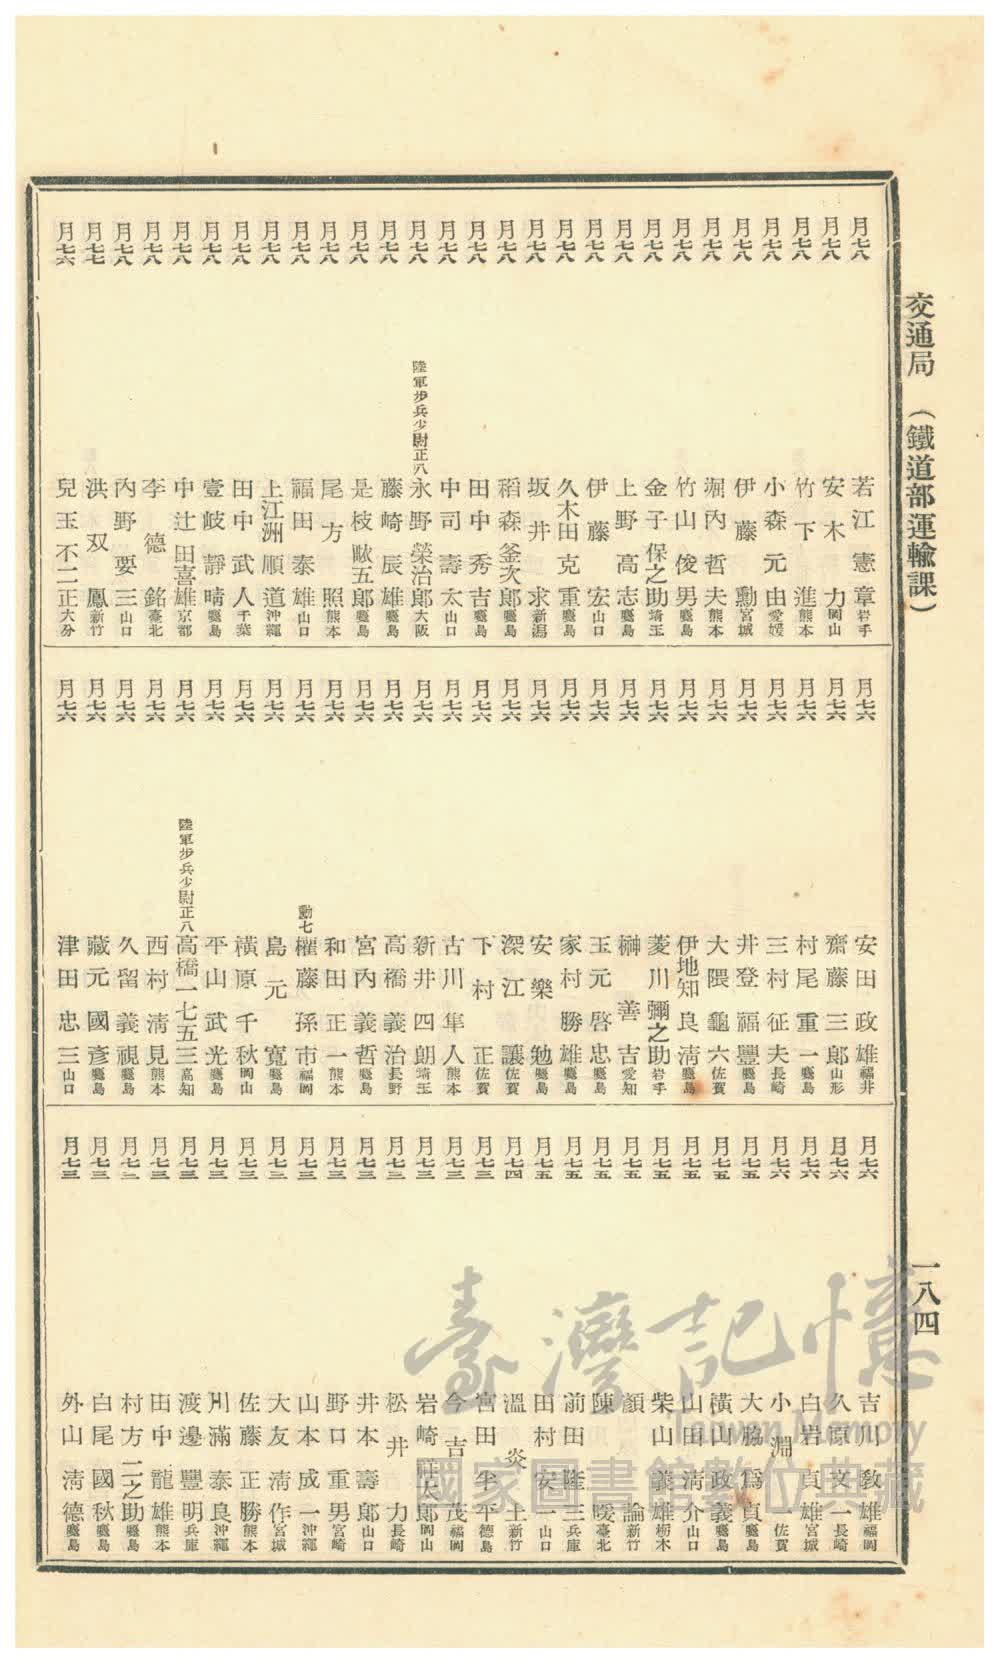 交通局 (鐵道部運輸課)
一八四
月七八 若江憲章 岩手
月七八 安木力 岡山
月七八 竹下進 熊本
月七八 小森元由 愛媛
月七八 伊藤勳 宮城
月七八 堀內哲夫 熊本
月七八 竹山俊男 鹿兒島
月七八 金子保之助 埼玉
月七八 上野高志 鹿兒島
月七八 伊藤宏 山口
月七八 久木田克重 鹿兒島
月七八 坂井求 新潟
月七八 稻森釜次郎 鹿兒島
月七八 田中秀吉 鹿兒島
月七八 中司壽太 山口
月七八 陸軍步兵少尉正八 永野榮治郎 大阪
月七八 藤崎辰雄 鹿兒島
月七八 是枝畩五郎 鹿兒島
月七八 尾方照 熊本
月七八 福田泰雄 山口
月七八 上江洲順道 沖繩
月七八 田中武人 千葉
月七八 壹岐靜晴 鹿兒島
月七八 中辻田喜雄 京都
月七八 李德銘 臺北
月七八 內野要三 山口
月七七 洪双鳳 新竹
月七六 兒玉不二正 大分
月七六 安田政雄 福井
月七六 齋藤三郎 山形
月七六 村尾重一 鹿兒島
月七六 三村征夫 長崎
月七六 井登福豐 鹿兒島
月七六 大隈龜六 佐賀
月七六 伊地知良淸 鹿兒島
月七六 菱川彌之助 岩手
月七六 榊善吉 愛知
月七六 玉元啓忠 鹿兒島
月七六 家村勝雄 鹿兒島
月七六 安樂勉 鹿兒島
月七六 深江讓 佐賀
月七六 下村正 佐賀
月七六 古川隼人 熊本
月七六 新井四朗 埼玉
月七六 高橋義治 長野
月七六 宮內義哲 鹿兒島
月七六 和田正一 熊本
月七六 勳七 權藤孫市 福岡
月七六 島元寬 鹿兒島
月七六 橫原千秋 岡山
月七六 平山武光 鹿兒島
月七六 陸軍步兵少尉正八 高橋一七五三 高知
月七六 西村淸見 熊本
月七六 久留義視 鹿兒島
月七六 藏元國彥 鹿兒島
月七六 津田忠三 山口
月七六 吉川敎雄 福岡
月七六 久原文一 長崎
月七六 白岩貞雄 宮城
月七六 小淵一 佐賀
月七五 大脇爲貞 鹿兒島
月七五 橫山政義 鹿兒島
月七五 山田淸介 山口
月七五 柴山義雄 栃木
月七五 顏論 新竹
月七五 陳暖 臺北
月七五 前田隆三 兵庫
月七五 田村安一 山口
月七四 溫炎土 新竹
月七三 宮田半平 德島
月七三 今吉茂 福岡
月七三 岩崎祥太郎 岡山
月七三 松井力 長崎
月七三 井本壽郎 山口
月七三 野口重男 宮崎
月七三 山本成一 沖繩
月七三 大友淸作 宮城
月七三 佐藤正勝 熊本
月七三 川滿泰良 沖繩
月七三 渡邊豐明 兵庫
月七三 田中龍雄 熊本
月七三 村方二之助 鹿兒島
月七三 白尾國秋 鹿兒島
月七三 外山淸德 鹿兒島
臺灣記憶
Taiwan Memory
國家圖書館數位典藏